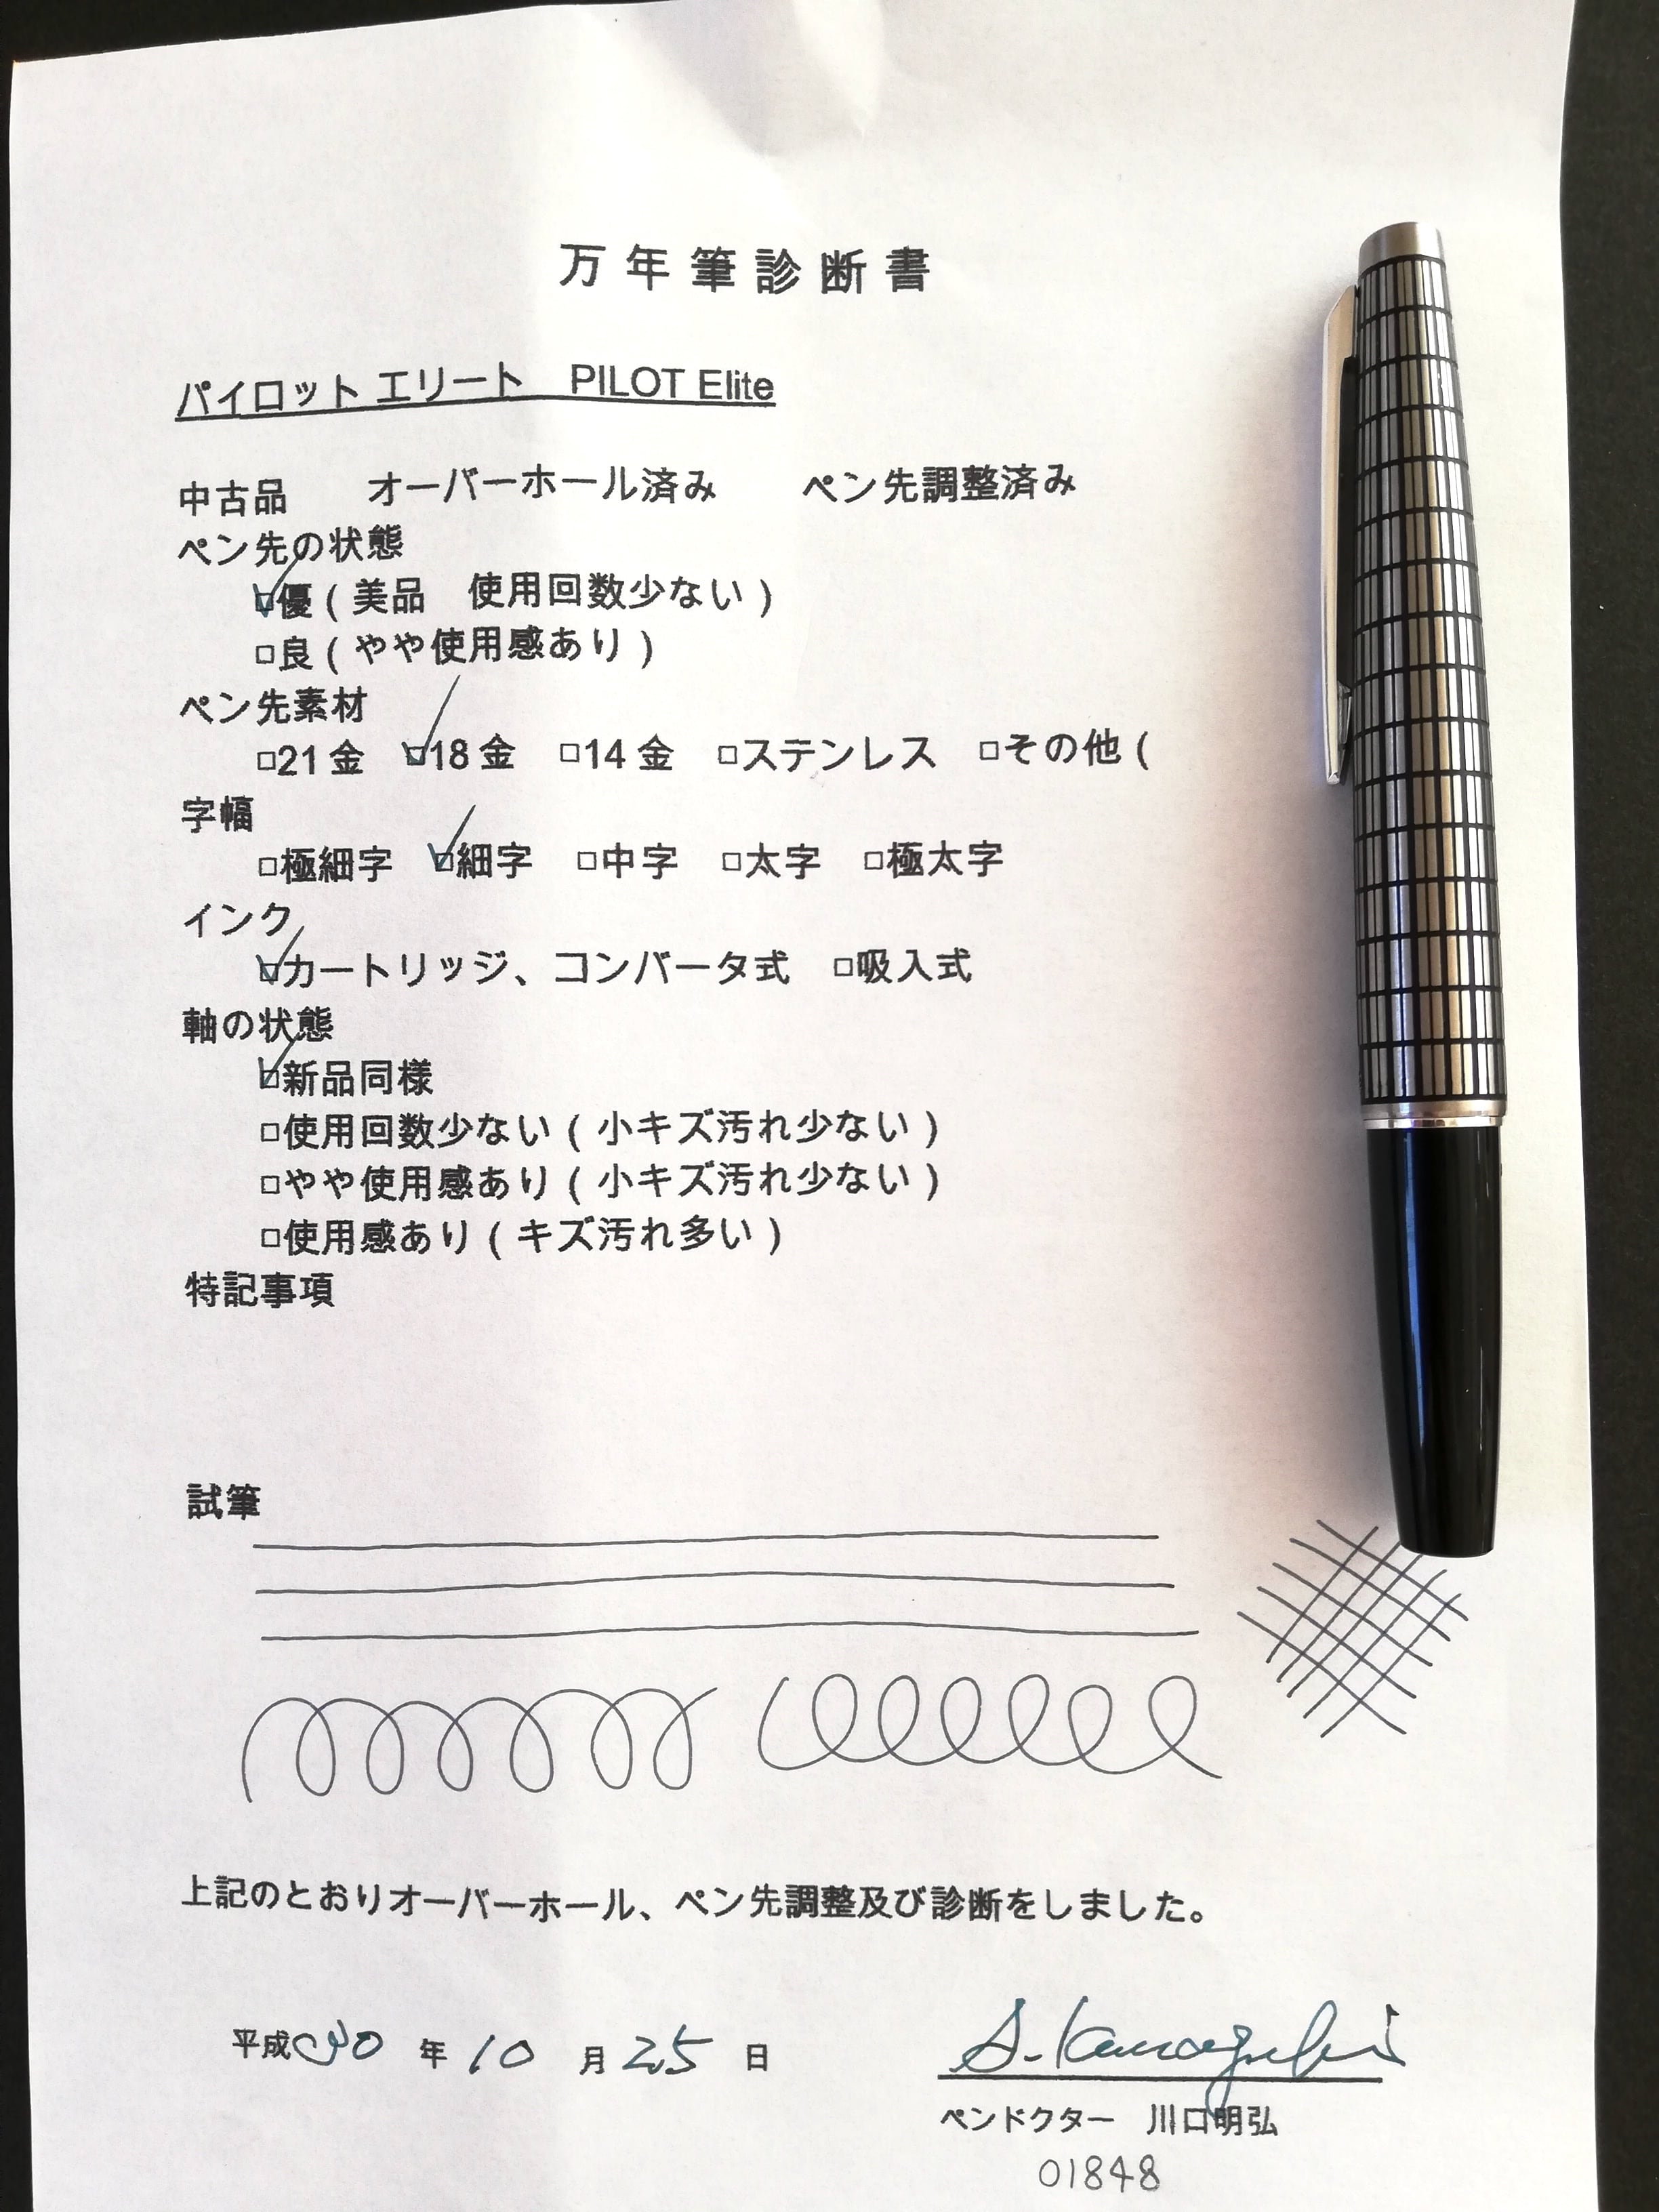 万年筆診断書
パイロット エリート　PILOT Elite
中古品　　オーバーホール済み　　ペン先調整済み
ペン先の状態
☑優（美品　使用回数少ない）
□良（やや使用感あり）
ペン先素材
□21金　☑18金　□14金　□ステンレス　□その他（
字幅
□極細字　☑細字　□中字　□太字　□極太字
インク
☑カートリッジ、コンバータ式　□吸入式
軸の状態
☑新品同様
□使用回数少ない（小キズ汚れ少ない）
□やや使用感あり（小キズ汚れ少ない）
□使用感あり（キズ汚れ多い）
特記事項
試筆
上記のとおりオーバーホール、ペン先調整及び診断をしました。
平成30年10月25日
A. Kawaguchi
ペンドクター　川口明弘
01848